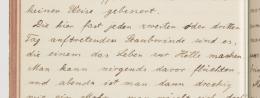 keiner Weise gebessert.
Die hier fast jeden zweiten oder dritten
Tag auftretenden Staubwinde sind es,
die einem das Leben zur Hölle machen
Man kann nirgends davor flüchten
und abends ist man dann dreckig
wie ein man nicht